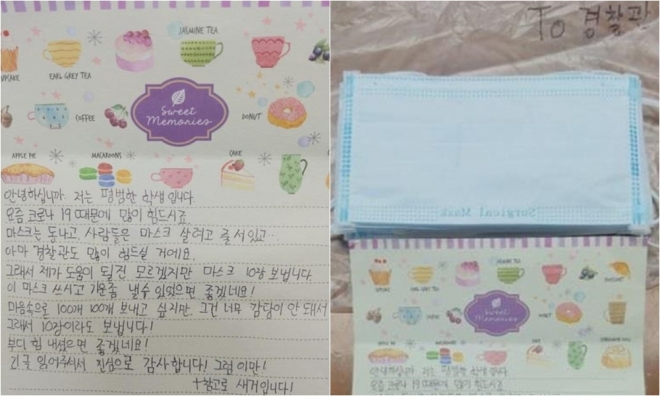 JASMINE TEA
EARL GREY TEA
COFFEE
Sweet
Memories
DONUT
APPLE PIE
MACAROONS
CAKE
안녕하십니까. 저는 평범한 학생입니다.
요즘 코로나 19 때문에 많이 힘드시죠.
마스크는 동나고, 사람들은 마스크 살려고 줄 서있고..
아마 경찰관도 많이 힘드실 거에요.
그래서 제가 도움이 될진 모르겠지만 마스크 10장 보냅니다.
이 마스크 쓰시고 기운좀 낼수 있었으면 좋겠네요!
마음속으로 100개 100개 보내고 싶지만, 그건 너무 감당이 안 돼서
그래서 10장이라도 보냅니다!
부디 힘 내셨으면 좋겠네요!
긴글 읽어주셔서 진심으로 감사합니다! 그럼 이만!
+참고로 새거입니다!
To 경찰관
Surgical Mask
Sweet
Memories
안녕하십니까. 저는 평범한 학생입니다
요즘 코로나 19 때문에 많이 힘드시죠